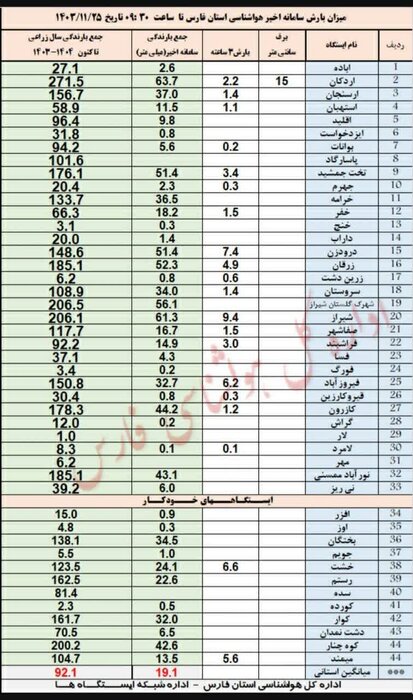 میزان بارش سامانه اخیر هواشناسی استان فارس تا ساعت ۰۹:۳۰ تاریخ ۱۴۰۳/۱۱/۲۵
ردیف نام ایستگاه برف سانتی متر بارش ۳ ساعته جمع بارندگی سامانه اخیر(میلی متر) جمع بارندگی سال زراعی تا کنون ۱۴۰۴-۱۴۰۳
1 اباده 2.6 27.1
2 اردکان 15 2.2 63.7 271.5
3 ارسنجان 1.4 37.0 156.7
4 استهبان 1.1 11.5 58.9
5 اقلید 9.8 96.4
6 ایزدخواست 0.8 31.8
7 بوانات 0.2 5.6 94.2
8 پاسارگاد 101.6
9 تخت جمشید 3.4 51.4 176.1
10 جهرم 0.3 2.3 20.4
11 خرامه 36.5 133.7
12 خفر 1.5 18.2 66.3
13 خنج 0.3 3.1
14 داراب 1.4 20.0
15 درودزن 7.4 51.4 148.6
16 زرقان 4.9 52.3 185.1
17 زرین دشت 0.6 0.8 6.2
18 سروستان 1.4 34.0 108.9
19 شهرک گلستان شیراز 56.1 206.5
20 شیراز 9.4 61.3 206.1
21 صفاشهر 1.5 16.7 117.7
22 فراشبند 3.0 14.9 92.2
23 فسا 4.3 37.1
24 فورگ 0.2 3.4
25 فیروزآباد 6.2 32.7 150.8
26 قیروکارزین 0.3 0.8 30.4
27 کازرون 1.2 44.2 178.3
28 گراش 0.2 12.0
29 لار 1.0
30 لامرد 0.1 0.1 8.3
31 مهر 6.2
32 نورآباد ممسنی 43.1 185.1
33 نی ریز 6.0 39.2
ایستگاههای خودکار
34 افزر 0.9 15.0
35 اوز 0.3 4.8
36 بختگان 34.5 138.1
37 جویم 1.0 5.5
38 خشت 6.6 24.1 123.5
39 رستم 22.6 162.5
40 سده 81.4
41 کورده 0.5 2.3
42 کوار 32.0 161.7
43 دشت نمدان 6.5 70.5
44 کوه چنار 42.6 200.2
44 میمند 5.6 13.5 104.7
*** میانگین استانی 19.1 92.1
اداره کل هواشناسی استان فارس - اداره شبکه ایستگاه ها